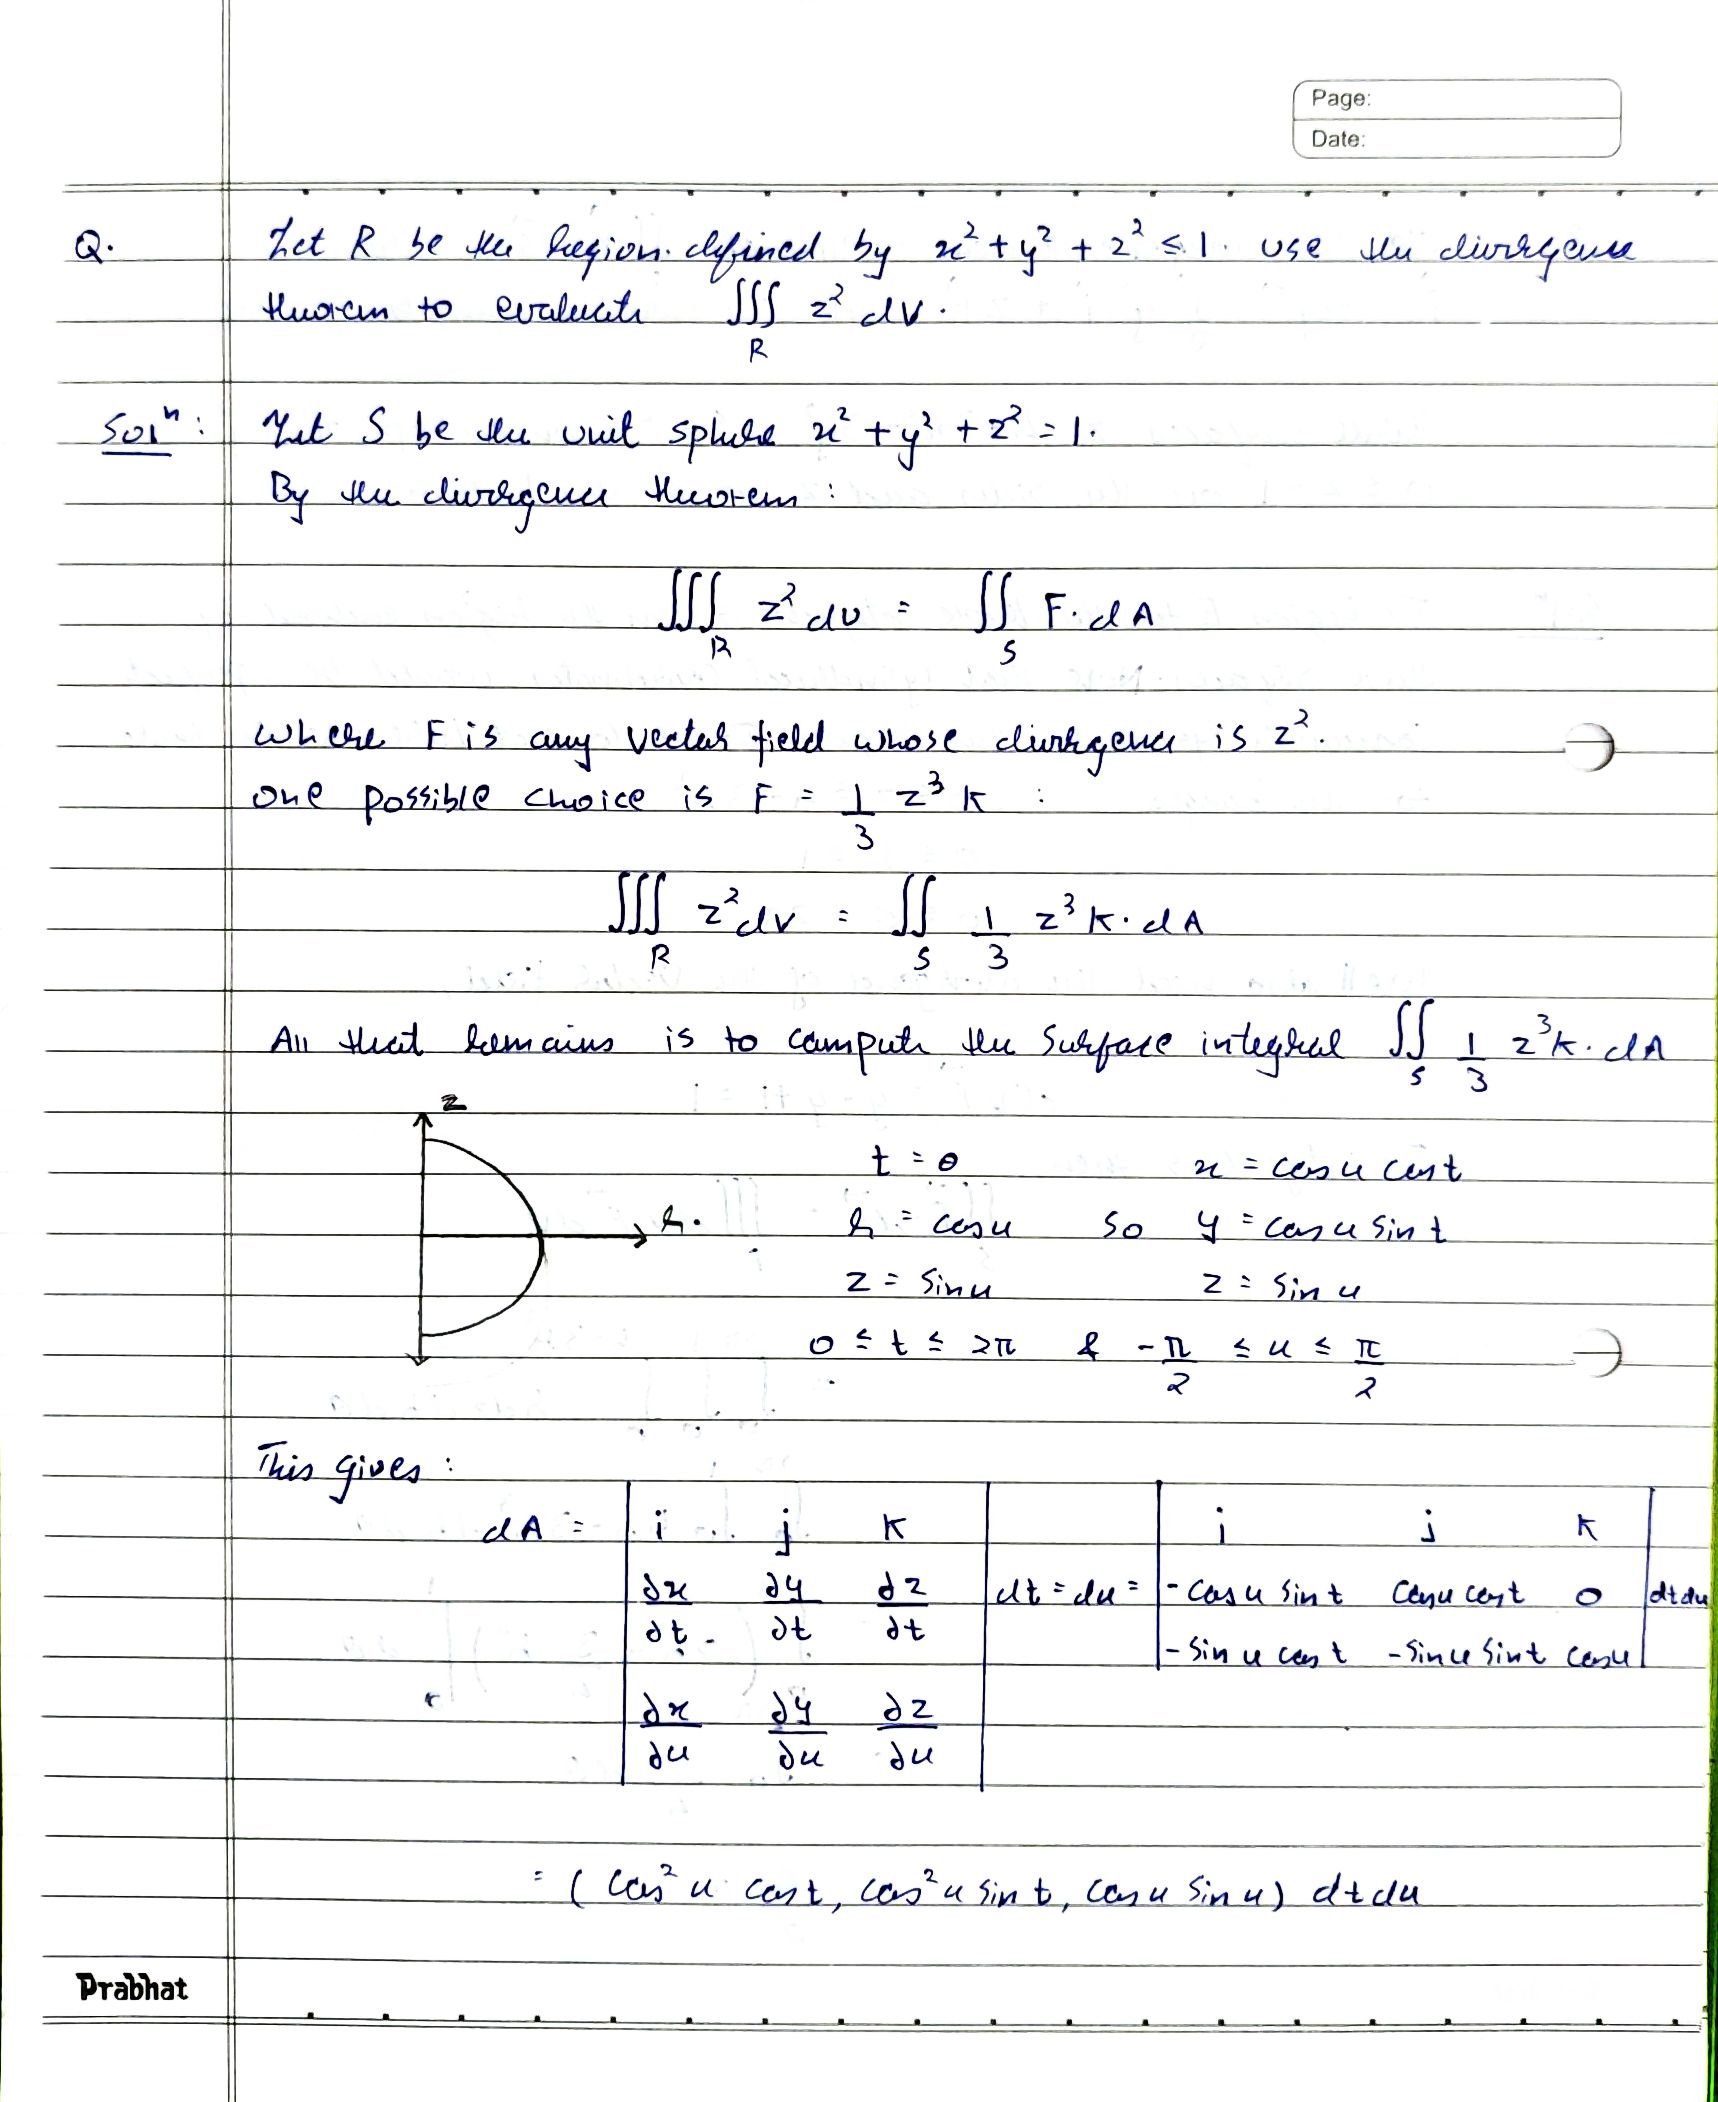 Page:
Date:
Q. Let R be the region defined by x² + y² + z² ≤ 1. use the divergence
theorem to evaluate ∭_R z² dv.
Solⁿ: Let S be the unit sphere x² + y² + z² = 1.
By the divergence theorem:
∭_R z² dv = ∬_S F·dA
where F is any vector field whose divergence is z².
One possible choice is F = 1/3 z³ k :
∭_R z² dv = ∬_S 1/3 z³ k·dA
All that remains is to compute the surface integral ∬_S 1/3 z³ k·dA
z
t = θ x = cos u cos t
r. r = cos u so y = cos u sin t
z = sin u z = sin u
0 ≤ t ≤ 2π & -π/2 ≤ u ≤ π/2
This gives:
dA = | i j k | dt = du = | i j k |
| ∂x/∂t ∂y/∂t ∂z/∂t | | -cos u sin t cos u cos t 0 | dt du
| ∂x/∂u ∂y/∂u ∂z/∂u | | -sin u cos t -sin u sin t cos u |
= (cos² u cos t, cos² u sin t, cos u sin u) dt du
Prabhat